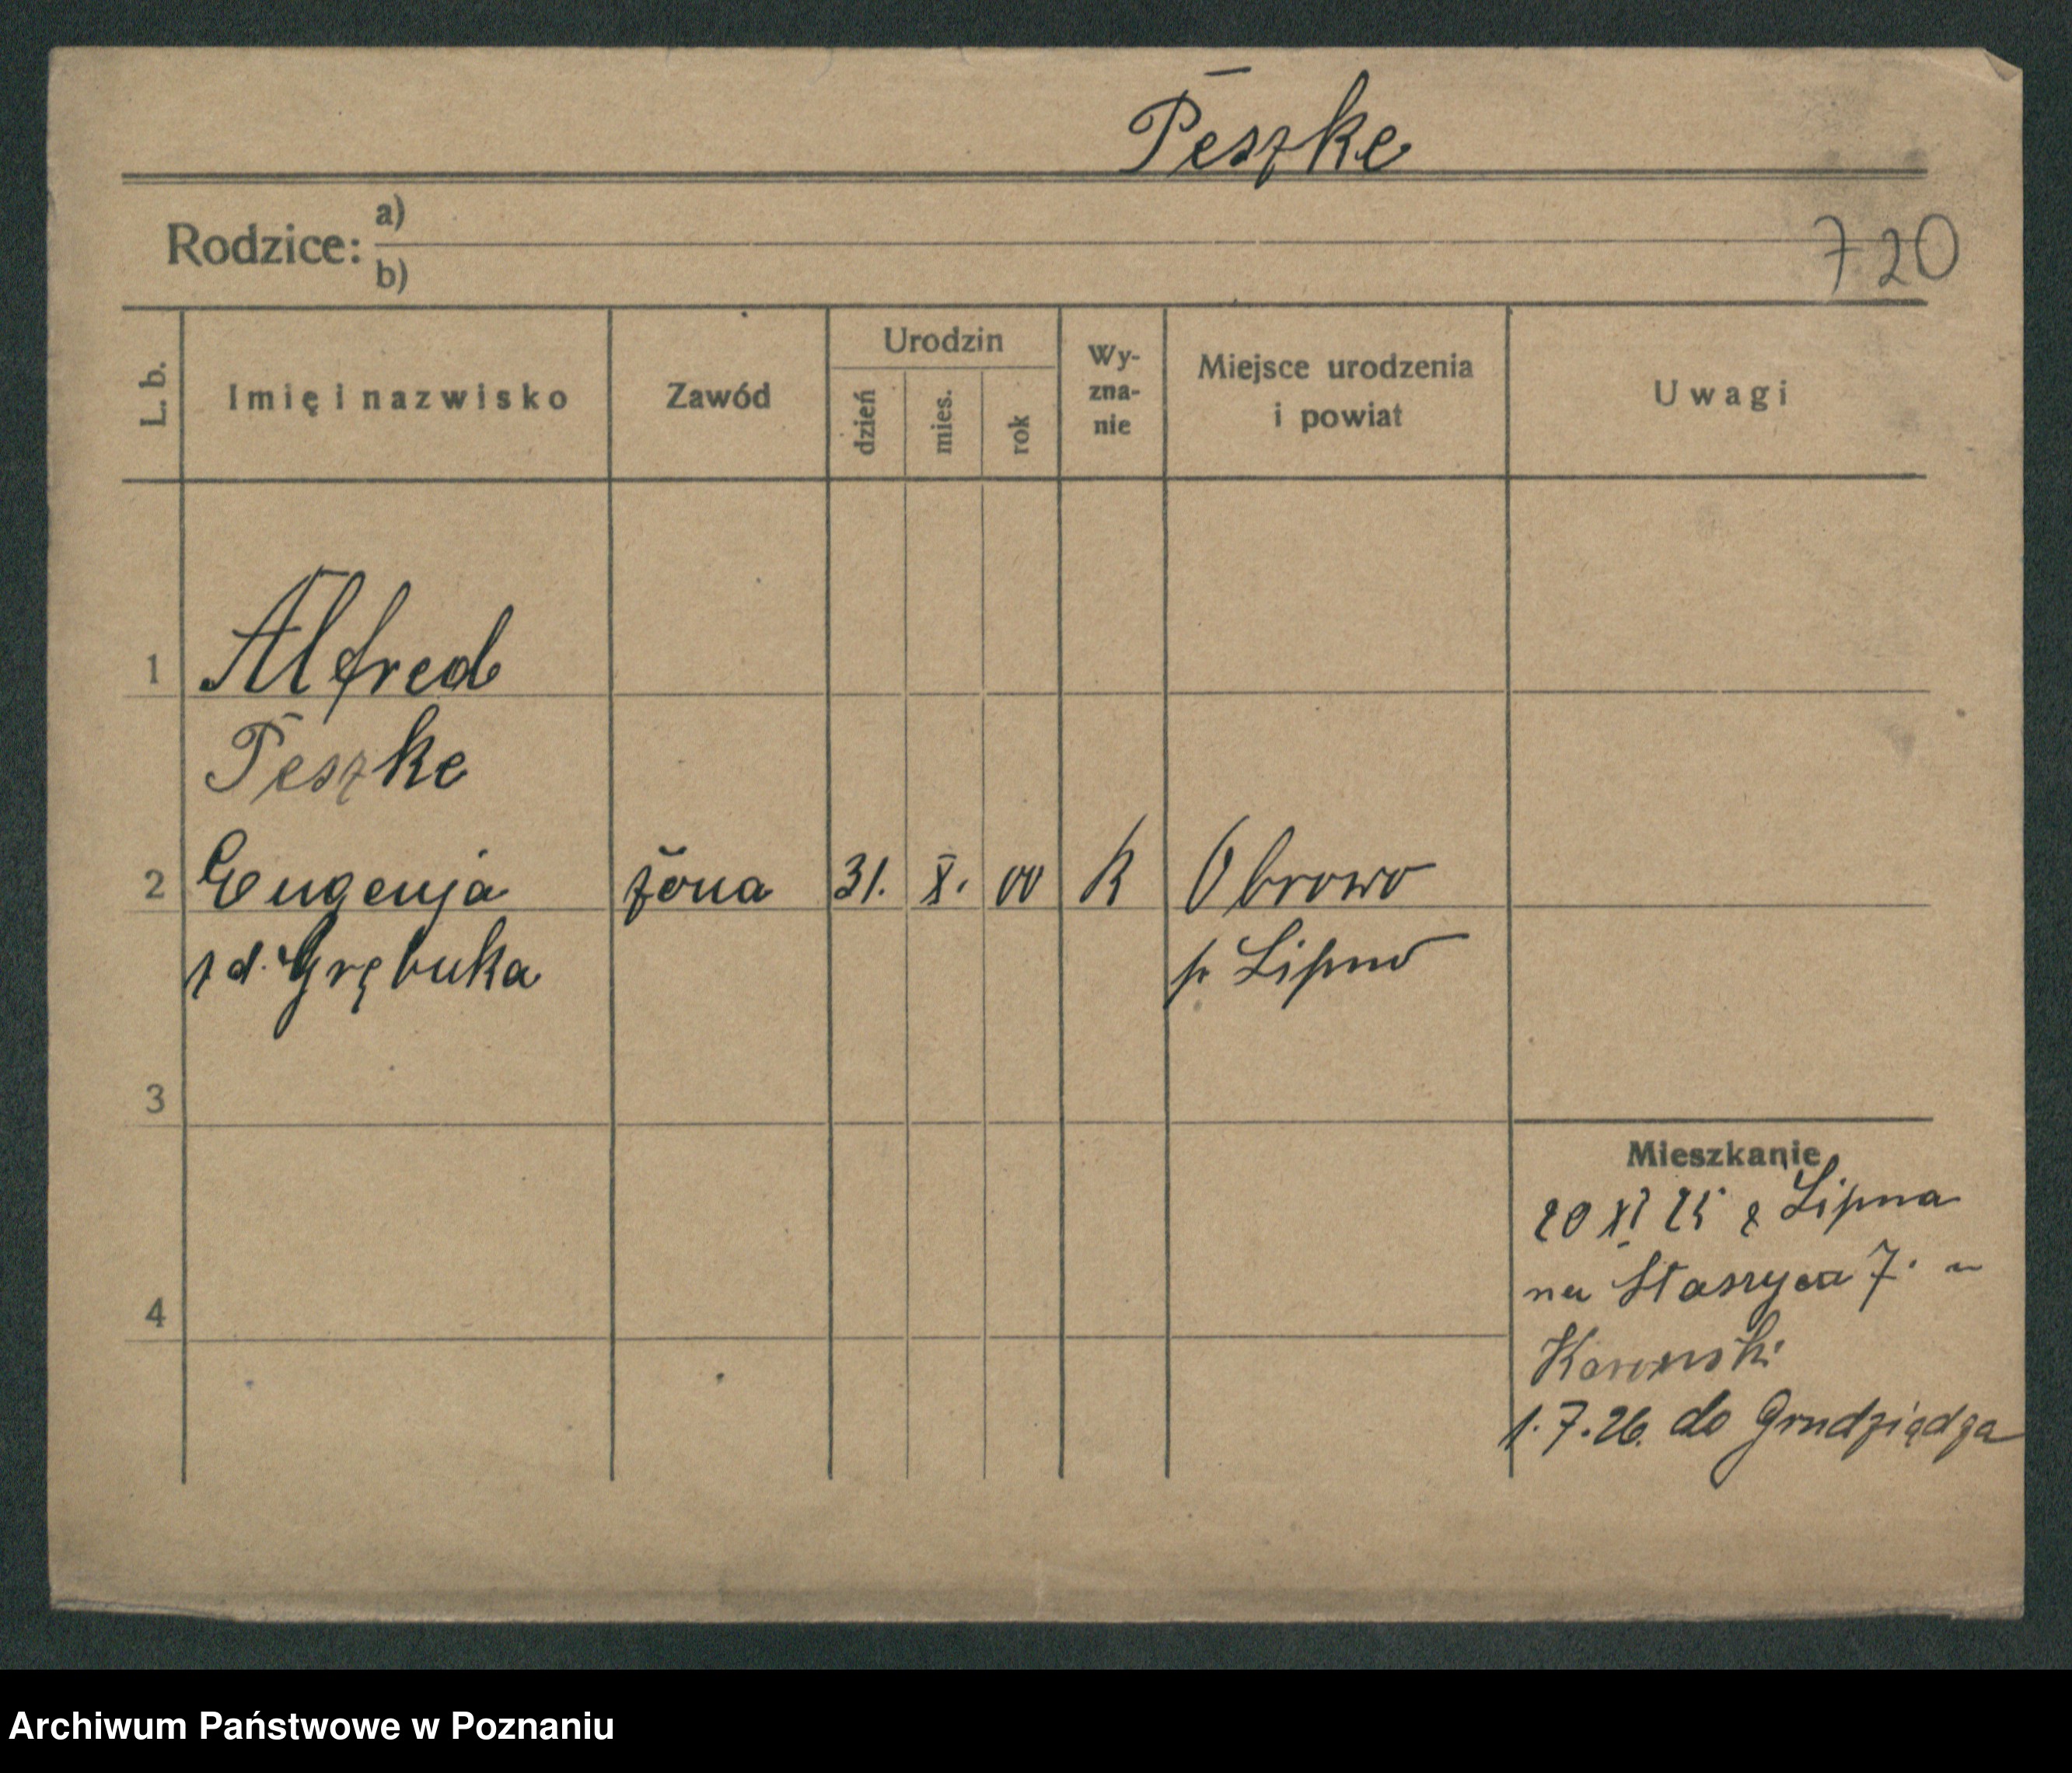 Peszke
Rodzice: a)
b)
720
L. b.
Imię i nazwisko
Zawód
Urodzin
dzień
mies.
rok
Wy-
zna-
nie
Miejsce urodzenia
i powiat
Uwagi
1 Alfred
Peszke
2 Eugenja żona 31. X. 00 k Obrowo
z d. Grębuka p. Lipno
3
4
Mieszkanie
20 XI 25 z Lipna
na Staszyca 7. u
1.7.26. do Grudziądza
Archiwum Państwowe w Poznaniu